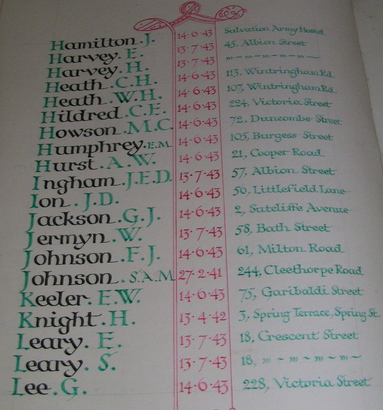 Hamilton. J. 14·6·43 Salvation Army Hostel
Harvey. E. 13·7·43 45, Albion Street
Harvey. H. 13·7·43 " " "
Heath. C.H. 14·6·43 113, Wintringham Rd.
Heath. W.H. 14·6·43 107, Wintringham Rd.
Hildred. C.E. 14·6·43 224, Victoria Street
Howson. M.C. 14·6·43 72, Duncombe Street
Humphrey. E.M. 14·6·43 105, Burgess Street
Hurst. A.W. 14·6·43 21, Cooper Road
Ingham. J.E.D. 13·7·43 57, Albion Street
Ion. J.D. 14·6·43 50, Littlefield Lane
Jackson. G.J. 14·6·43 2, Sutcliffe Avenue
Jermyn. W. 13·7·43 58, Bath Street
Johnson. F.J. 14·6·43 61, Milton Road
Johnson. S.A.M. 27·2·41 244, Cleethorpe Road
Keeler. E.W. 14·6·43 75, Garibaldi Street
Knight. H. 13·4·42 3, Spring Terrace, Spring St.
Leary. E. 13·7·43 18, Crescent Street
Leary. S. 13·7·43 18, " " "
Lee. G. 14·6·43 228, Victoria Street